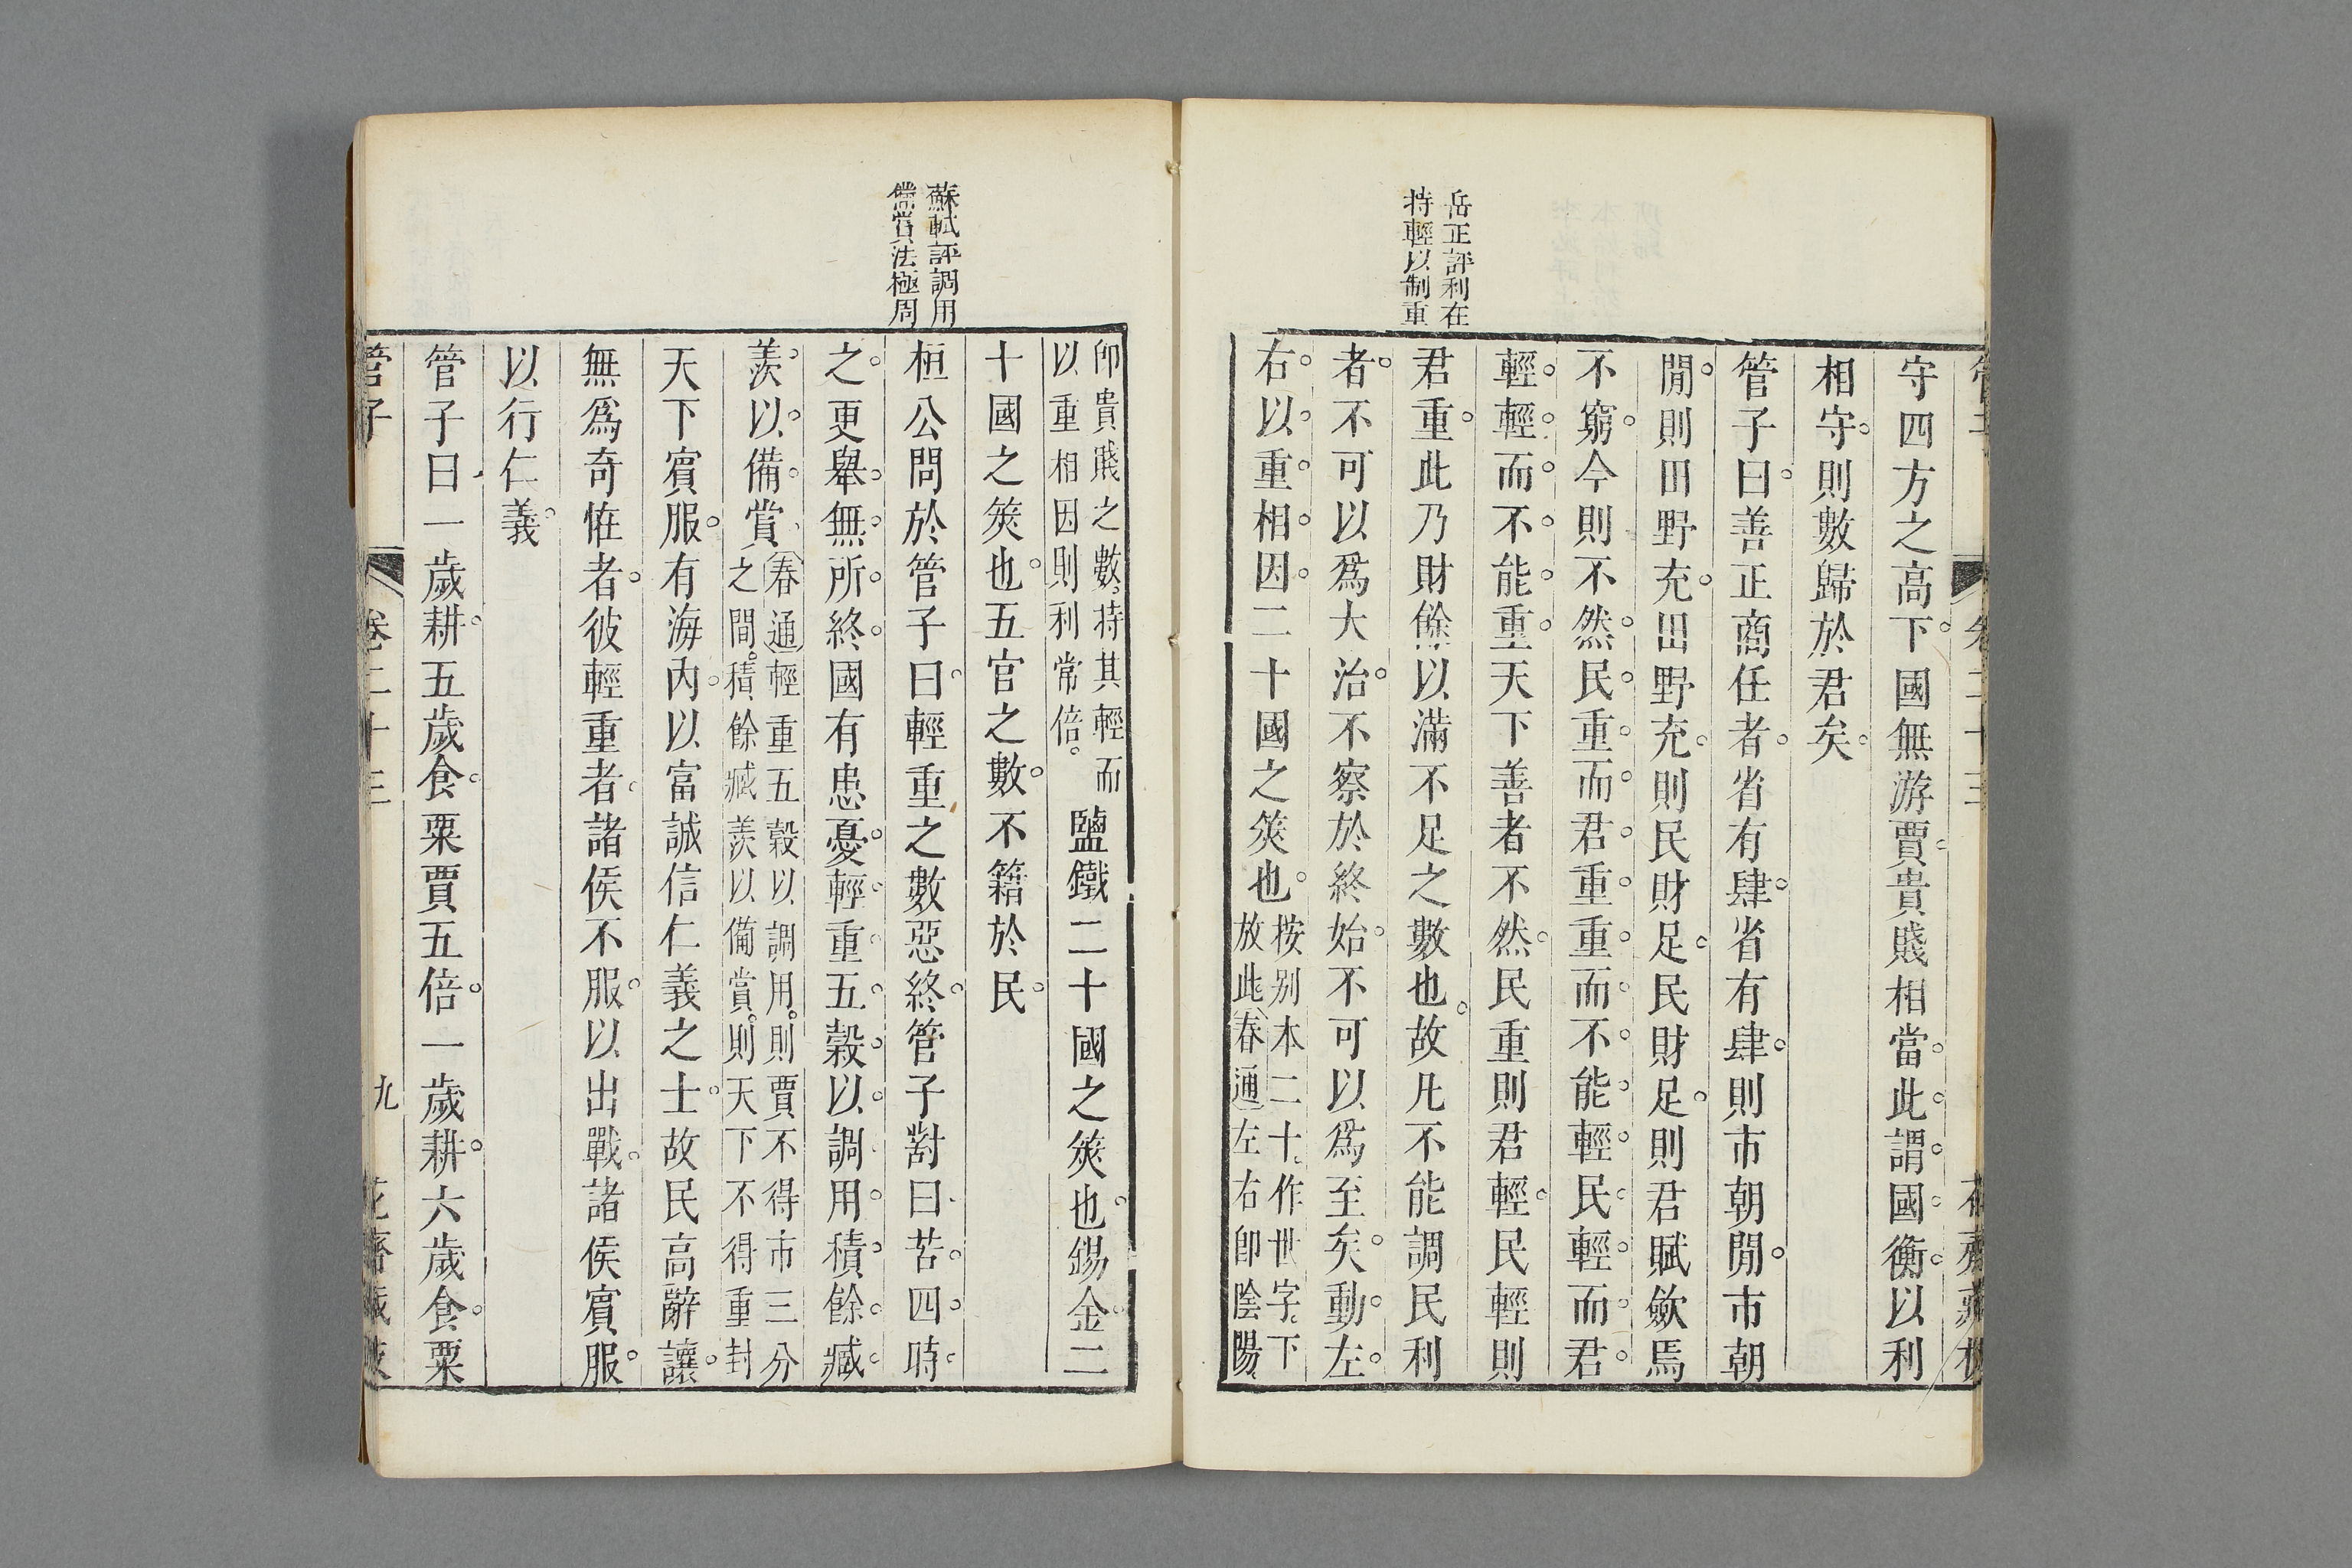 守四方之高下。國無游賈。貴賤相當。此謂國衡。以利
相守。則數歸於君矣。
管子曰。善正商任者。省有肆。省有肆。則市朝閒。市朝
閒。則田野充。田野充。則民財足。民財足。則君賦斂焉
不窮。今則不然。民重而君重。重而不能輕。民輕而君
輕。輕而不能重。天下善者不然。民重則君輕。民輕則
君重。此乃財餘以滿不足之數也。故凡不能調民利
者。不可以爲大治。不察於終始。不可以爲至矣。動左
右。以重相因。二十國之筴也。
桉別本二十。作世字。下
放此春通左右卽陰陽、
岳正評利在
持輕以制重
卽貴賤之數。持其輕而
以重相因則利常倍。
鹽鐵二十國之筴也。錫金二
十國之筴也。五官之數。不籍於民。
桓公問於管子曰。輕重之數惡終。管子對曰。苦四時
之更舉。無所終。國有患憂。輕重五穀以調用。積餘臧
羨以備賞、
春通輕重五穀以調用。則賈不得市三分
之間。積餘臧羨以備賞。則天下不得重封
天下賓服。有海內。以富誠信仁義之士。故民高辭讓。
無爲奇恠者。彼輕重者。諸侯不服以出戰。諸侯賓服。
以行仁義。
管子曰、一歲耕。五歲食。粟賈五倍。一歲耕。六歲食。粟
蘇軾評調用
備賞法極周
管子
卷二十三
九
花齋藏板